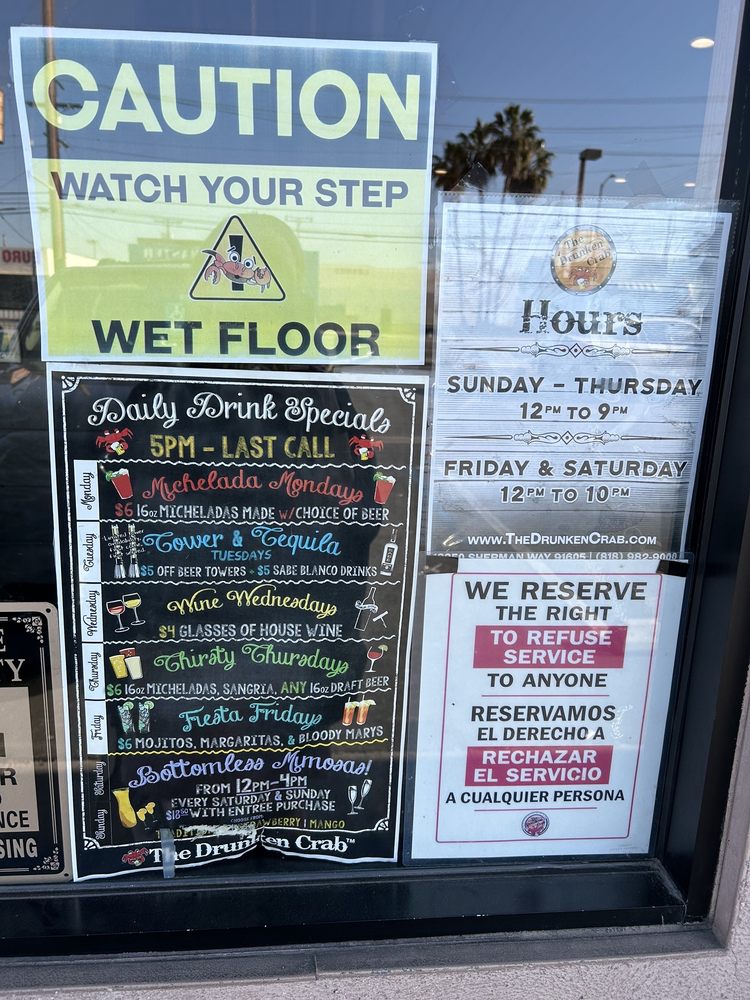 CAUTION
WATCH YOUR STEP
WET FLOOR
Daily Drink Specials
5PM - LAST CALL
Monday
Michelada Mondays
$6 16oz MICHELADAS MADE w/CHOICE OF BEER
Tuesday
Tower & Tequila
TUESDAYS
$5 OFF BEER TOWERS • $5 SABE BLANCO DRINKS
Wednesday
Wine Wednesdays
$4 GLASSES OF HOUSE WINE
Thursday
Thirsty Thursdays
$6 16oz MICHELADAS, SANGRIA, ANY 16oz DRAFT BEER
Friday
Fiesta Fridays
$6 MOJITOS, MARGARITAS, & BLOODY MARYS
Saturday
Sunday
Bottomless Mimosas!
FROM 12PM-4PM
EVERY SATURDAY & SUNDAY
WITH ENTREE PURCHASE
CHOOSE FROM
| MANGO
The Drunken Crab™
The
Drunken
Crab
Hours
SUNDAY - THURSDAY
12PM TO 9PM
FRIDAY & SATURDAY
12PM TO 10PM
WWW.THEDRUNKENCRAB.COM
SHERMAN WAY 91605 | (818) 982-9000
WE RESERVE
THE RIGHT
TO REFUSE
SERVICE
TO ANYONE
RESERVAMOS
EL DERECHO A
RECHAZAR
EL SERVICIO
A CUALQUIER PERSONA